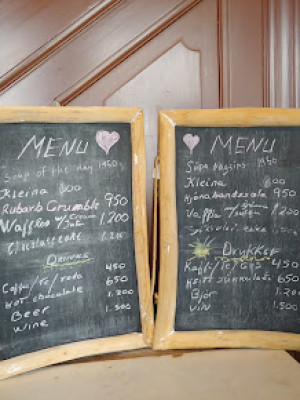 MENU
Soup of the day 1950
Kleina 600
Rubarb Crumble 950
Waffles w/ Cream Jam 1.200
Chocolate cake 1.200
DRINKS
Coffee/Te/soda 450
Hot chocolate 650
Beer 1.200
Wine 1.500
MENU
Súpa dagsins 1950
Kleina 600
Hjónabandssæla 950
Vaffla 1.200
Súkkulaði kaka
DRYKKIR
Kaffi/Te/Gos 450
Heitt súkkulaði 650
Bjór 1.200
Vín 1.500